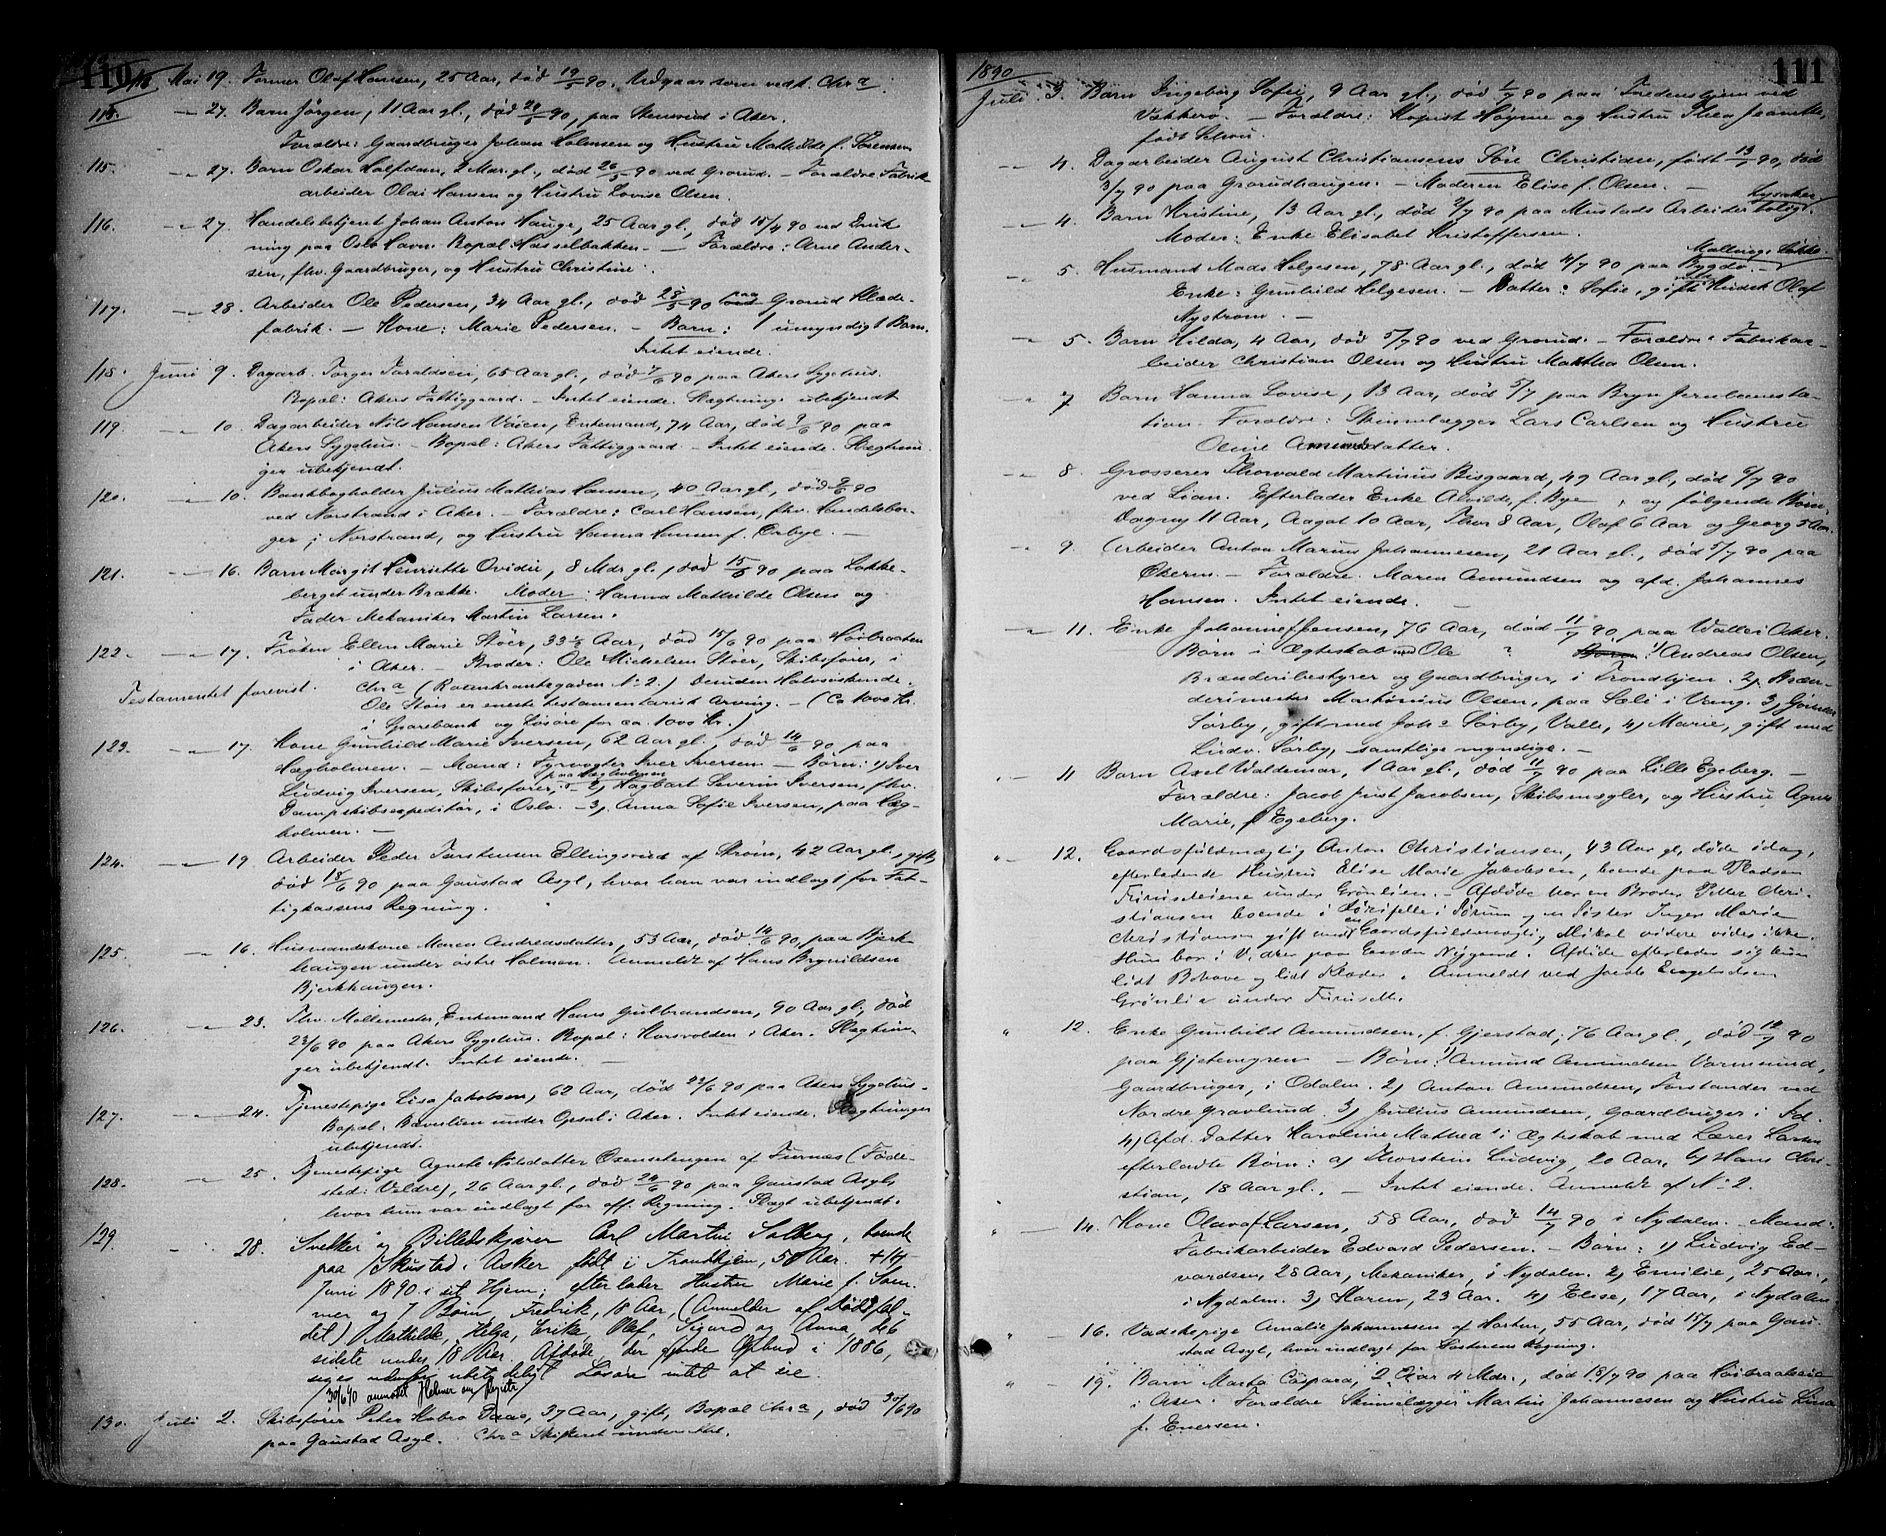 110
Mai 19. Former Olaf Hansen, 25 Aar, død 19/5 90. Udgaar som vedk. Chr.a
27. Barn Jörgen, 11 Aar gl., död 24/5 90, paa i Aker.
Forældre: Gaardbruger Johan Holmsen og Hustru Mathilde f. Sörensen
115. 27. Barn Oskar Halfdan, 2 Mdr. gl., död 26/5 90 ved Grorud. – Forældre Fabrik-
arbeider Olai Hansen og Hustru Lovise Olsen.
116. 27. Handelsbetjent Johan Anton Hauge, 25 Aar gl., död 15/4 90 ved Druk-
ning paa Oslo Havn. Bopæl Hasselbakken. – Forældre: Arne Ander-
sen, fhv. Gaardbruger, og Hustru Christine.
117. 28. Arbeider Ole Pedersen, 34 Aar gl., död 28/5 90 paa Grorud Klæde-
fabrik. – Kone: Marie Pedersen. – Barn: 1 umyndigt Barn.
Intet eiende.
118. Juni 9. Dagarb. Torger Taraldsen, 65 Aar gl., död 7/6 90 paa Akers Sygehus.
Bopæl: Akers Fattiggaard. – Intet eiende. Slægtninge ubekjendt
119 10. Dagarbeider Nils Hansen Vöien, Enkemand, 74 Aar, död 9/6 90 paa
Akers Sygehus. – Bopæl: Akers Fattiggaard – Intet eiende. Slægtnin-
ger ubekjendt.
120. 10. Bankbogholder Julius Mathias Hansen, 40 Aar gl., död 90
ved Norstrand i Aker. – Forældre: Carl Hansen, fhv. Handelsbor-
ger, i Norstrand, og Hustru Hanna Hansen f. Örbye. –
121. 16. Barn Margit Henriette Ovidie, 8 Mdr. gl., död 15/6 90 paa Lakke-
berget under Brække. Moder: Hanna Mathilde Olsen og
Fader Mekaniker Martin Larsen.
122. 17. Fröken Ellen Marie Stöer, 33½ Aar, död 15/6 90 paa Höibraaten
i Aker. – Broder: Ole Michelsen Stöer, Skibsförer, i
Testamentet forevist. Chr.a (Rosenkrantzgaden No 2.) Desuden
Ole Stöer er eneste testamentarisk Arving. – (Ca 1000 Kr.
i Sparebank og Lösöre for ca. 1000 Kr.)
123. 17. Kone Gunhild Marie Iversen, 62 Aar gl., död 14/6 90 paa
Hægholmen. – Mand: Fyrvogter Iver Iversen – Börn: 1) Iver
paa Hægholmen
Ludvig Iversen, Skibsförer, 2) Hagbart Severin Iversen, fhv.
Dampskibsexpeditör, i Oslo. – 3) Anna Sofie Iversen, paa Hæg-
holmen. –
124. 19. Arbeider Peder Torstensen Ellingsrud af Ström, 42 Aar gl., gift,
död 18/6 90 paa Gaustad Asyl, hvor han var indlagt for Fat-
tigkassens Regning.
125. 16. Husmandskone Maren Andreasdatter, 53 Aar, död 14/6 90, paa Bjerk-
haugen under östre Holmen. Anmeldt af Hans Brynildsen
Bjerkhaugen.
126. 23. Fhv. Möllemester, Enkemand Hans Gulbrandsen, 90 Aar gl., död
23/6 90 paa Akers Sygehus. Bopæl: Korsvolden i Aker. Slægtnin-
ger ubekjendt. Intet eiende. –
127. 24. Tjenestepige Lisa Jakobsen, 62 Aar, död 22/6 90 paa Akers Sygehus.
Bopæl: under Opsal i Aker. Intet eiende. Slægtninger
ubekjendt.
128. 25. Tjenestepige Agnete Nilsdatter Oxenstengen af Furnes (Föde-
sted: Veldre), 26 Aar gl., död 24/6 90 paa Gaustad Asyl,
hvor hun var indlagt for off. Regning. Slægt ubekjendt.
129. 28. Snekker og Billedskjærer Carl Martin Solberg, boende
paa Skustad i Asker födt i Trondhjem, 50 Aar. † 14
Juni 1890 i sit Hjem; efterlader Hustru Marie f. Som-
mer og 7 Börn, Fredrik, 18 Aar, (Anmelder af Dödsfal-
det) Mathilde, Helga, Erika, Olaf, Sigurd og Anna de 6
sidste under 18 Aar. Afdöde, der gjorde Opbud i 1886,
siges ubetydeligt Lösöre intet at eie.
30/6 90 anmeldt
130. Juli 2. Skibsförer Peter Holro 37 Aar, gift, Bopæl Chr.a, död 30/6 90
paa Gaustad Asyl. Chr.a Skifteret under
1890 111
Juli 3. Barn Ingeborg Sofie, 9 Aar gl., död 1/7 90 paa Fredenshjem ved
Vækkerö. – Forældre: Kopist Höyme og Hustru Thea Jeanette,
födt Schou.
4. Dagarbeider August Christiansens Sön Christian, födt 13/ 90, död
3/7 90 paa Grorudhaugen. – Moderen Elise f. Olsen. –
Lysaker
4. Barn Kristine, 13 Aar gl., död 2/7 90 paa Mustads Arbeider bolig.
Moder: Enke Elisabet Kristoffersen.
5. Husmand Mads Helgesen, 78 Aar gl., död 4/7 90 paa Bygdö. –
Enke: Gunhild Helgesen. – Datter: Sofie, gift Olaf
Nyström. –
5. Barn Hilda, 4 Aar, död 5/7 90 ved Grorud. – Forældre: Fabrikar-
beider Christian Olsen og Hustru Mathea Olsen.
7 Barn Hanna Lovise, 13 Aar, död 5/7 paa Bryn Jernbanesta-
tion. Forældre: Skinnelægger Lars Carlsen og Hustru
Oline Amundsdatter.
8. Grosserer Thorvald Martinus Bisgaard, 49 Aar gl., död 6/7 90
ved Lian. Efterlader Enke Alvilde, f. Bye, og fölgende Börn:
Dagny 11 Aar, Aagot 10 Aar, Thor 8 Aar, Olaf 6 Aar og Georg 5 Aar.
9. Arbeider Anton Marius Johannesen, 21 Aar gl., död 5/7 90 paa
Ökern. – Forældre: Maren Amundsen og afd. Johannes
Hansen. Intet eiende. –
11. Enke Johanne Jensen, 76 Aar, död 11/7 90, paa Valle i Aker.
Börn i Ægteskab med Ole ? 1) Andreas Olsen,
Brænderibestyrer og Gaardbruger, i Trondhjem. 2) Bræn-
derimester Martinius Olsen, paa Sæli i Vang. 3)
Sörby, gift med Joh.s Sörby, Valle, 4) Marie, gift med
Ludv. Sörby, samtlige myndige. –
11 Barn Axel Valdemar, 1 Aar gl., död 11/7 90 paa Lille Egeberg. –
Forældre: Jacob Just Jacobsen, Skibsmægler, og Hustru Agnes
Marie, f. Egeberg.
12. Gaardsfuldmægtig Anton Christiansen, 43 Aar gl., döde idag,
efterladende Hustru Elise Marie Jakobsen, boende paa Pladsen
Furuseteiene under Grönlien. – Afdöde har en Broder Petter Chri-
stiansen boende i i Sörum og en Söster Inger Marie
Christiansen gift med en Gaardsfuldmægtig Mikal videre vides ikke.
Hun bor i V. Aker paa Gaarden Nygaard. Afdöde efterlader sig kun
lidt Bohave og lidt Klæder. Anmeldt ved Jacob Engebretsen
Grönlie under Furuset.
12. Enke Gunhild Amundsen, f. Gjerstad; 76 Aar gl., död 12/7 90
paa Gjetemyren – Börn: 1) Amund Amundsen Vormsund,
Gaardbruger, i Odalen. 2) Anton Amundsen, Forstander ved
Nordre Gravlund. 3) Julius Amundsen, Gaardbruger i
4) Afd. Datter Karoline Mathea's i Ægteskab med Lærer Larsen
efterladte Börn: a) Thorstein Ludvig, 20 Aar, b) Hans Chri-
stian, 18 Aar gl. – Intet eiende. Anmeldt af No 2.
14. Kone Olava Larsen, 58 Aar, död 14/7 90 i Nydalen. – Mand:
Fabrikarbeider Edvard Pedersen. – Börn: 1) Ludvig Ed-
vardsen, 28 Aar, Mekaniker, i Nydalen. 2) Emilie, 25 Aar,
i Nydalen. 3) Karen, 23 Aar. 4) Elise, 17 Aar, i Nydalen.
16. Vadskepige Amalie Johannesen af Horten, 55 Aar, död 15/7 paa Gau-
stad Asyl, hvor indlagt for Söstrens Regning.
19. Barn Marta Caspara, 2 Aar 4 Mdr., död 18/7 90 paa Höibraaten
i Aker. Forældre Skinnelægger Martin Johannesen og Hustru Lina
f. Enersen.